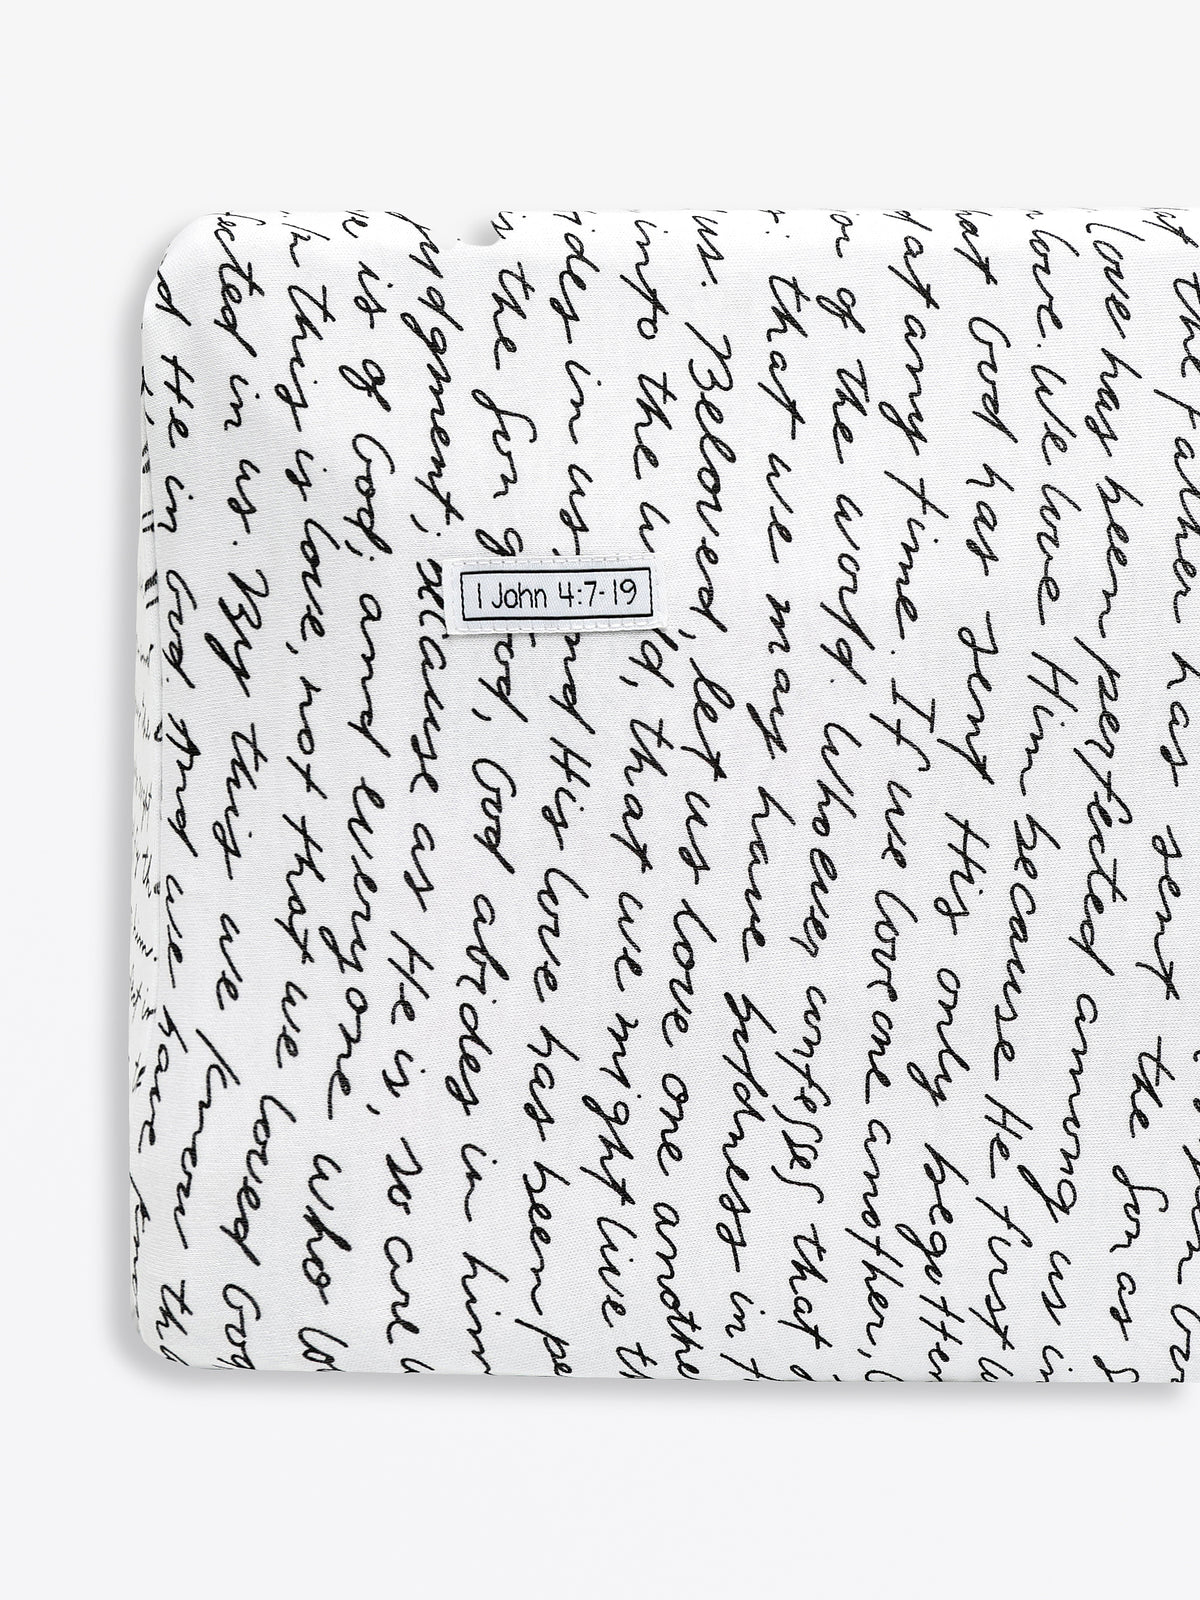 the Father has sent the Son as
love has been perfected among us in
love. We love Him because He first
hat God has sent His only begotten
at any time. If we love one another,
or of the world. Whoever confesses that
that we may have boldness in
us. Beloved, let us love one anothe
into the w ld, that we might live th
ides in us, and His love has been pe
is the Son of God, God abides in him
judgment; because as He is, so are
ve is of God; and everyone who lo
In this is love, not that we loved God
fected in us. By this we know th
He in God. And we have
1 John 4:7-19